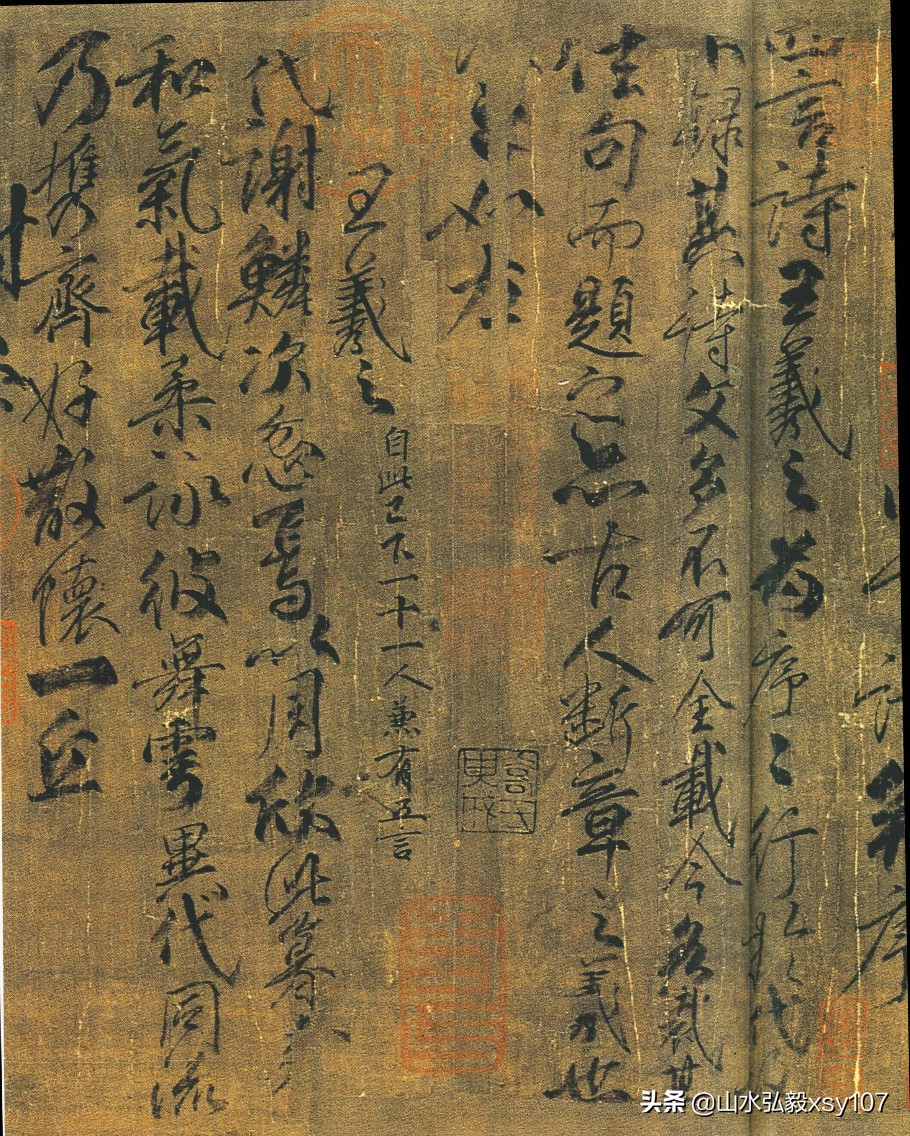 四言詩王羲之為序〻行於代故
不錄其詩文多不可全載今各裁其
佳句而題之亦古人斷章之義也
如左
王羲之 自此已下一十一人兼有五言
代謝鱗次忽焉以周欣此暮春
和氣載柔詠彼舞雩異代同流
乃攜齊好散懷一丘
头条 @山水弘毅xsy107